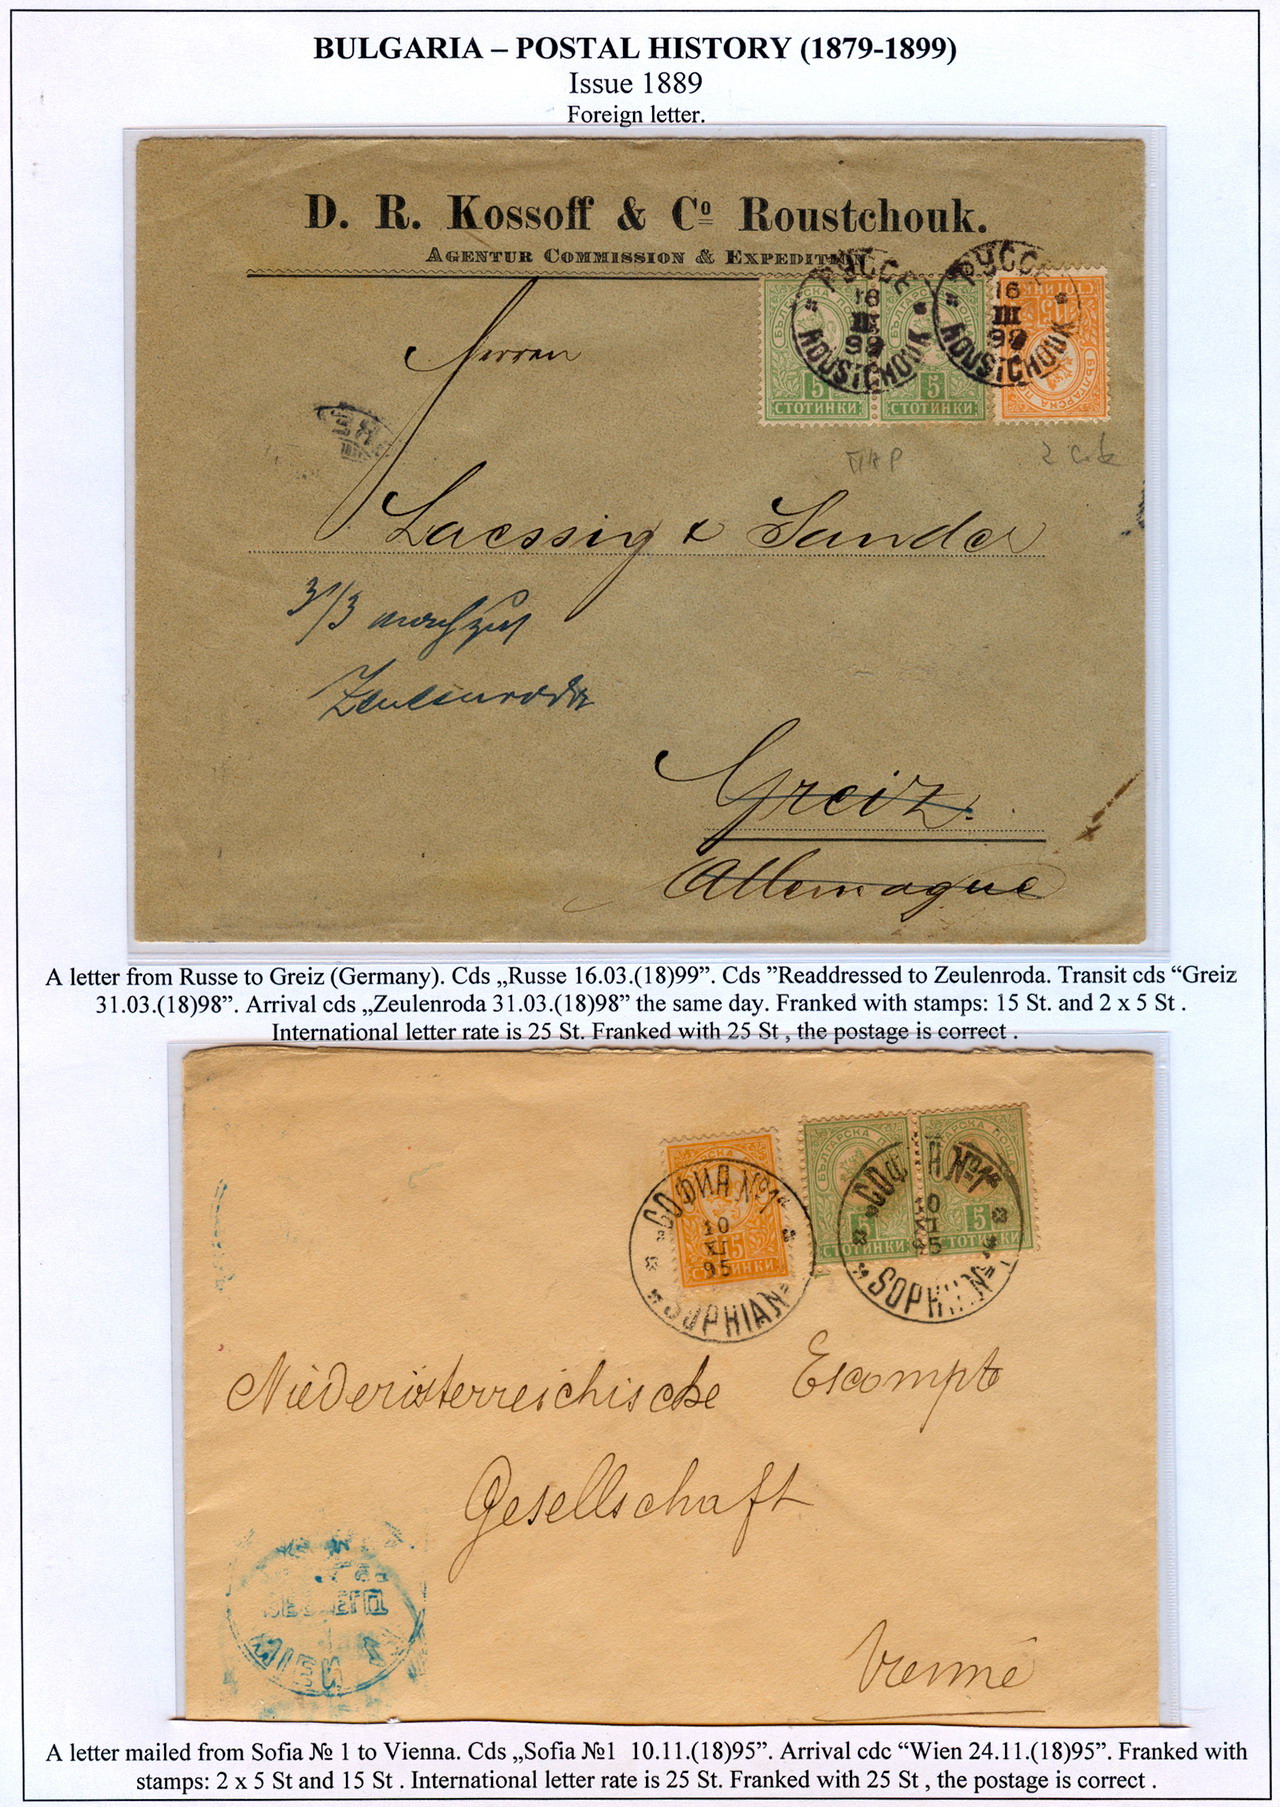 BULGARIA – POSTAL HISTORY (1879-1899)
Issue 1889
Foreign letter.
D. R. Kossoff & Cº Roustchouk.
AGENTUR COMMISSION & EXPEDITION
РУССЕ
16
III
99
ROUSTCHOUK
РУССЕ
16
III
99
ROUSTCHOUK
БЪЛГАРСКА ПОЩА
5
СТОТИНКИ
БЪЛГАРСКА ПОЩА
5
СТОТИНКИ
БЪЛГАРСКА ПОЩА
15
СТОТИНКИ
Herren
Laessig & Sander
31/3
Zeulenroda
Greiz.
Allemagne
A letter from Russe to Greiz (Germany). Cds „Russe 16.03.(18)99”. Cds ”Readdressed to Zeulenroda. Transit cds “Greiz
31.03.(18)98”. Arrival cds „Zeulenroda 31.03.(18)98” the same day. Franked with stamps: 15 St. and 2 x 5 St .
International letter rate is 25 St. Franked with 25 St , the postage is correct .
"СОФИЯ №1"
10
XI
95
"SOPHIA N"
15
СТОТИНКИ
БЪЛГАРСКА ПОЩА
5
СТОТИНКИ
БЪЛГАРСКА ПОЩА
5
СТОТИНКИ
"СОФИЯ №1"
10
XI
95
"SOPHIA N"
Niederösterreichische Escompte
Gesellschaft
WIEN
Vienne
A letter mailed from Sofia № 1 to Vienna. Cds „Sofia №1 10.11.(18)95”. Arrival cdc “Wien 24.11.(18)95”. Franked with
stamps: 2 x 5 St and 15 St . International letter rate is 25 St. Franked with 25 St , the postage is correct .